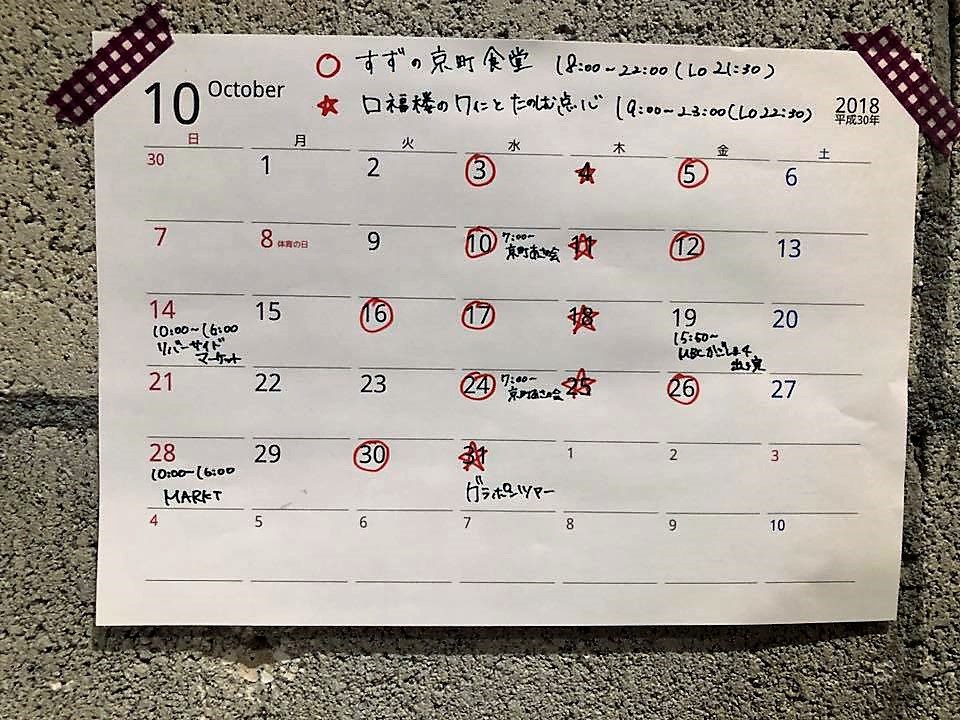 10 October
すずの京町食堂 18:00~22:00(LO 21:30)
口福楼のワインとたのしむ点心 19:00~23:00(LO 22:30)
2018
平成30年
日 月 火 水 木 金 土
30 1 2 3 4 5 6
7 8 体育の日 9 10 11 12 13
7:00~
京町あさの会
14 15 16 17 18 19 20
10:00~16:00
リバーサイド
マーケット
15:50~
出演
21 22 23 24 25 26 27
7:00~
京町あさの会
28 29 30 31 1 2 3
10:00~16:00
MARKT
グラポンツアー
4 5 6 7 8 9 10